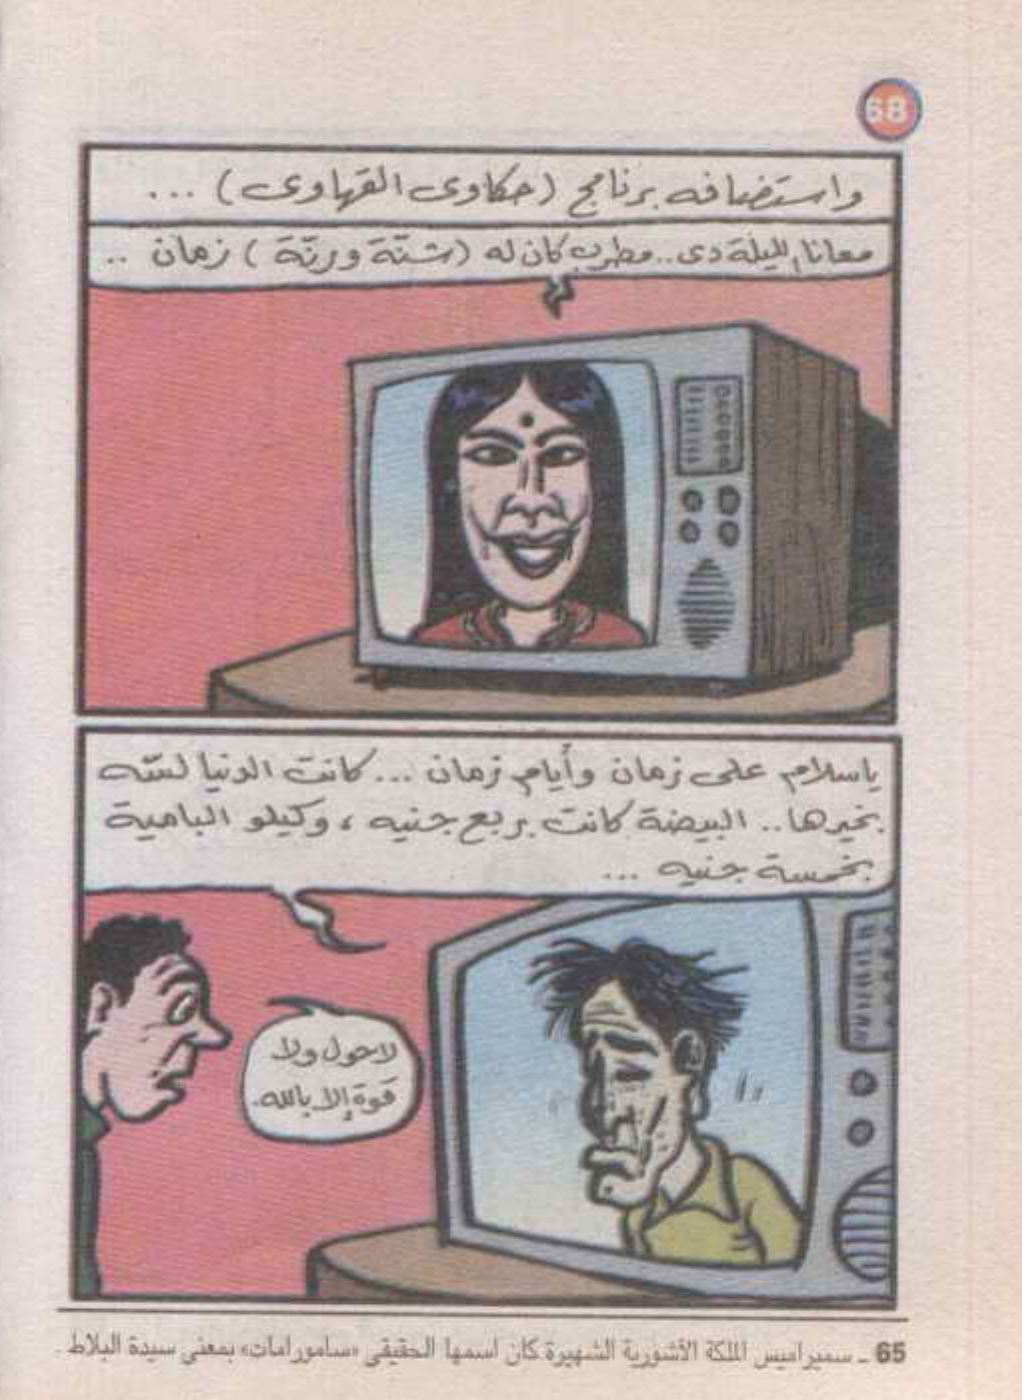 68
واستضافه برنامج (حكاوى القهاوى) ...
معانا الليلة دى.. مطرب كان له (شنّة ورنّة) زمان ..
ياسلام على زمان وأيام زمان ... كانت الدنيا لسّه
بخيرها.. البيضة كانت بربع جنيه ، وكيلو البامية
بخمسة جنيه ...
لاحول ولا
قوة إلا بالله.
65 ـ سميراميس الملكة الأشورية الشهيرة كان اسمها الحقيقى «سامورامات» بمعنى سيدة البلاط .